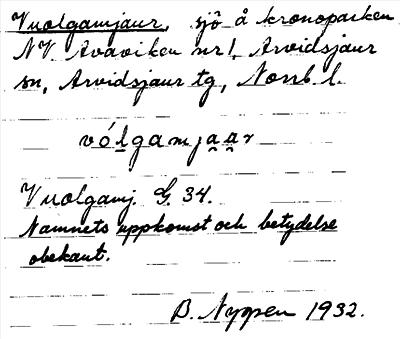 Vuolgamjaur, sjö å kronoparken
NV Avaviken nr 1, Arvidsjaur
sn, Arvidsjaur tg, Norrb. l.
vólgamja̯a̯r
Vuolgamj. G. 34.
Namnets uppkomst och betydelse
obekant.
B. Nygren 1932.